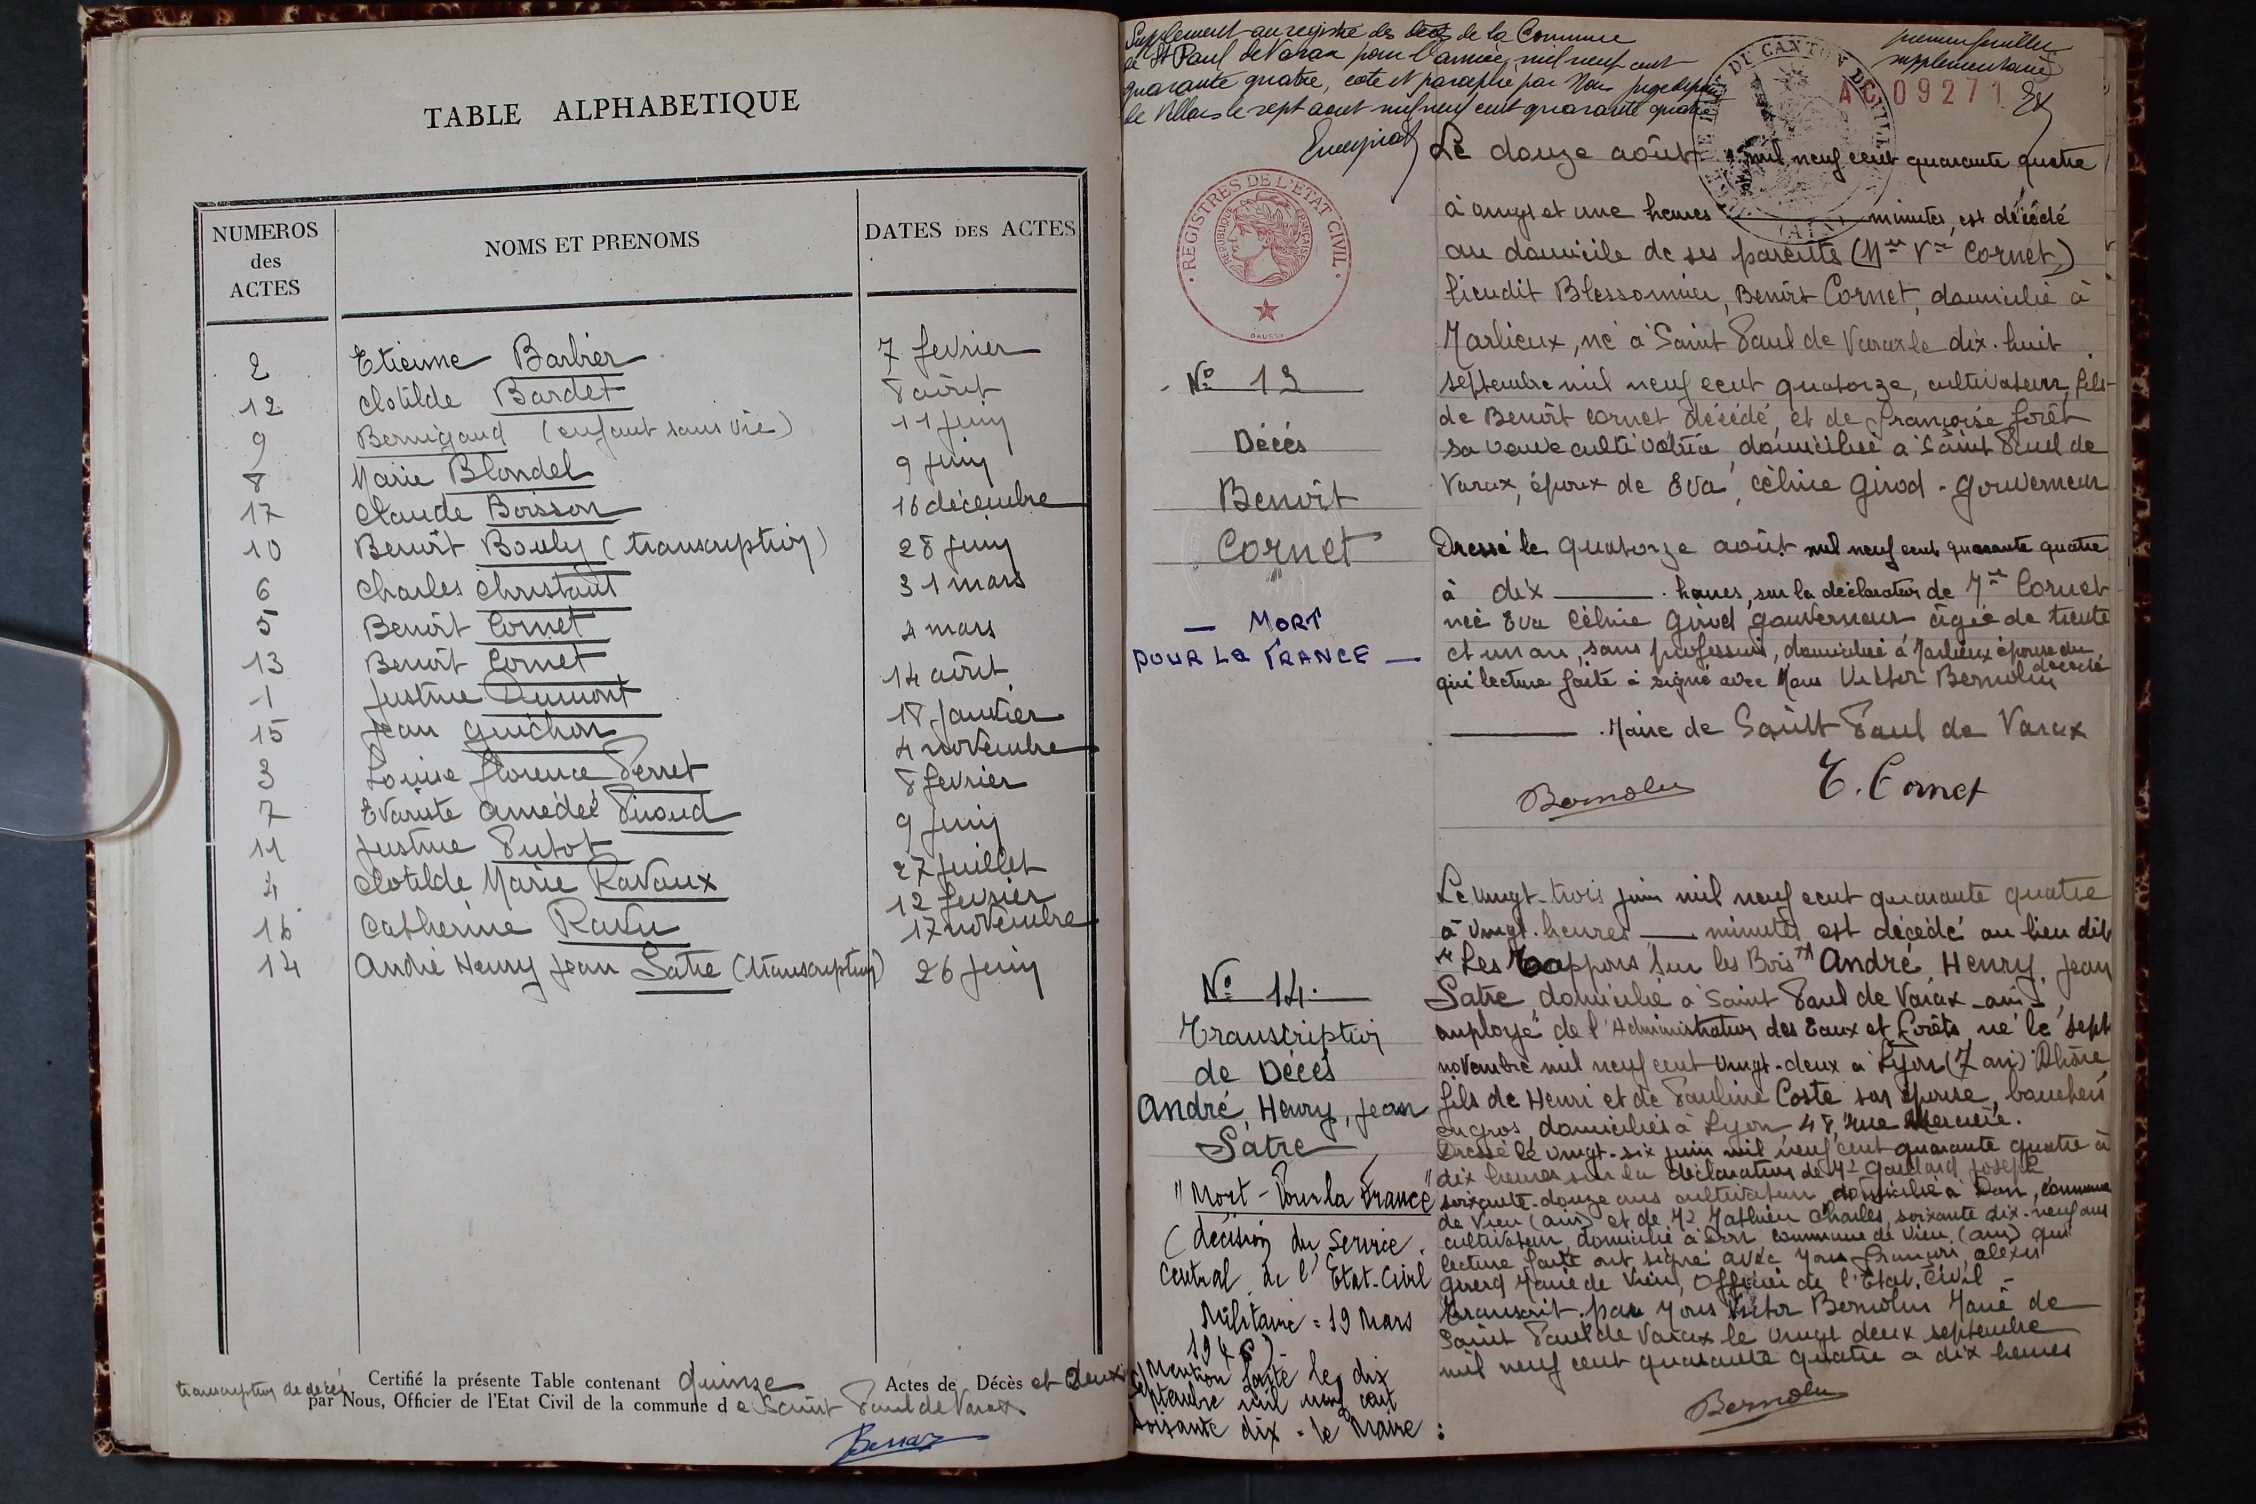 TABLE ALPHABETIQUE
NUMEROS des ACTES
NOMS ET PRENOMS
DATES DES ACTES
2 Etienne Barbier 7 fevrier
12 Clotilde Bardet 8 août
9 Bernigaud (enfant sans vie) 11 juin
8 Marie Blondel 9 juin
17 Claude Boisson 16 décembre
10 Benoît Bouly (transcription) 28 juin
6 Charles Christaut 31 mars
5 Benoît Cornet 4 mars
13 Benoît Cornet 14 août
1 Justine Dumont 18 Janvier
15 Jean Guichon 4 novembre
3 Louise Florence Perret 8 fevrier
7 Evariste Amédée Piroud 9 juin
11 Justine Putot 27 Juillet
4 Clotilde Marie Ravaux 12 fevrier
16 Catherine Ravu 17 novembre
14 André Henry Jean Satre (transcription) 26 juin
Certifié la présente Table contenant quinze Actes de Décès et deux
transcription de décès
par Nous, Officier de l'Etat Civil de la commune de Saint Paul de Varax
Supplement au registre des décès de la Commune
de St Paul de Varax pour l'année mil neuf cent
quarante quatre, coté et paraphé par Nous Juge de paix
de Villars le sept aout mil neuf cent quarante quatre
premier feuillet
supplementaire
AC 09271
REGISTRES DE L'ETAT CIVIL
REPUBLIQUE FRANCAISE
Le douze août mil neuf cent quarante quatre
à vingt et une heures minutes, est décédé
au domicile de ses parents (Mme Vve Cornet)
lieudit Blessonnier, Benoît Cornet, domicilié à
Marlieux, né à Saint Paul de Varax le dix-huit
septembre mil neuf cent quatorze, cultivateur, fils
de Benoît Cornet décédé, et de Françoise Forêt
sa veuve cultivatrice domiciliée à Saint Paul de
Varax, époux de Eva, Céline Girod-Gouverneur
Dressé le quatorze août mil neuf cent quarante quatre
à dix heures, sur la déclaration de Mme Cornet
née Eva Céline Girod Gouverneur âgée de trente
et un an, sans profession, domiciliée à Marlieux épouse du décédé
qui lecture faite a signé avec Nous Victor Bernolin
Maire de Saint Paul de Varax
Bernolin
E. Cornet
No 13
Décés
Benoît
Cornet
— MORT
POUR LA FRANCE —
Le vingt-trois juin mil neuf cent quarante quatre
à vingt heures minutes est décédé au lieu dit
" Les Rappons sur les Bois " André, Henry, Jean
Satre, domicilié à Saint Paul de Varax - ain
employé de l'Administration des Eaux et Forêts né le sept
novembre mil neuf cent vingt-deux à Lyon (7 arr) Rhône
fils de Henri et de Pauline Coste son épouse, bouchers
en gros, domiciliés à Lyon, 48, rue Mercière.
Dressé le vingt-six juin mil neuf cent quarante quatre à
dix heures sur la déclaration de Mr Gaillard Joseph
soixante-douze ans cultivateur domicilié à Don, commune
de Vieu (ain) et de Mr Mathieu Charles, soixante dix-neuf ans
cultivateur domicilié à Don commune de Vieu (ain) qui
lecture faite ont signé avec Nous François, Alexis
Maire de Vieu, Officier de l'Etat Civil -
Transcrit par Nous Victor Bernolin Maire de
Saint Paul de Varax le vingt deux septembre
mil neuf cent quarante quatre à dix heures
Bernolin
No 14.
Transcription
de Décés
André, Henry, Jean
Satre
" Mort - Pour la France "
( décision du Service
Central de l'Etat-Civil
Militaire = 19 mars
Mention faite le dix
septembre mil neuf cent
soixante dix - le Maire :